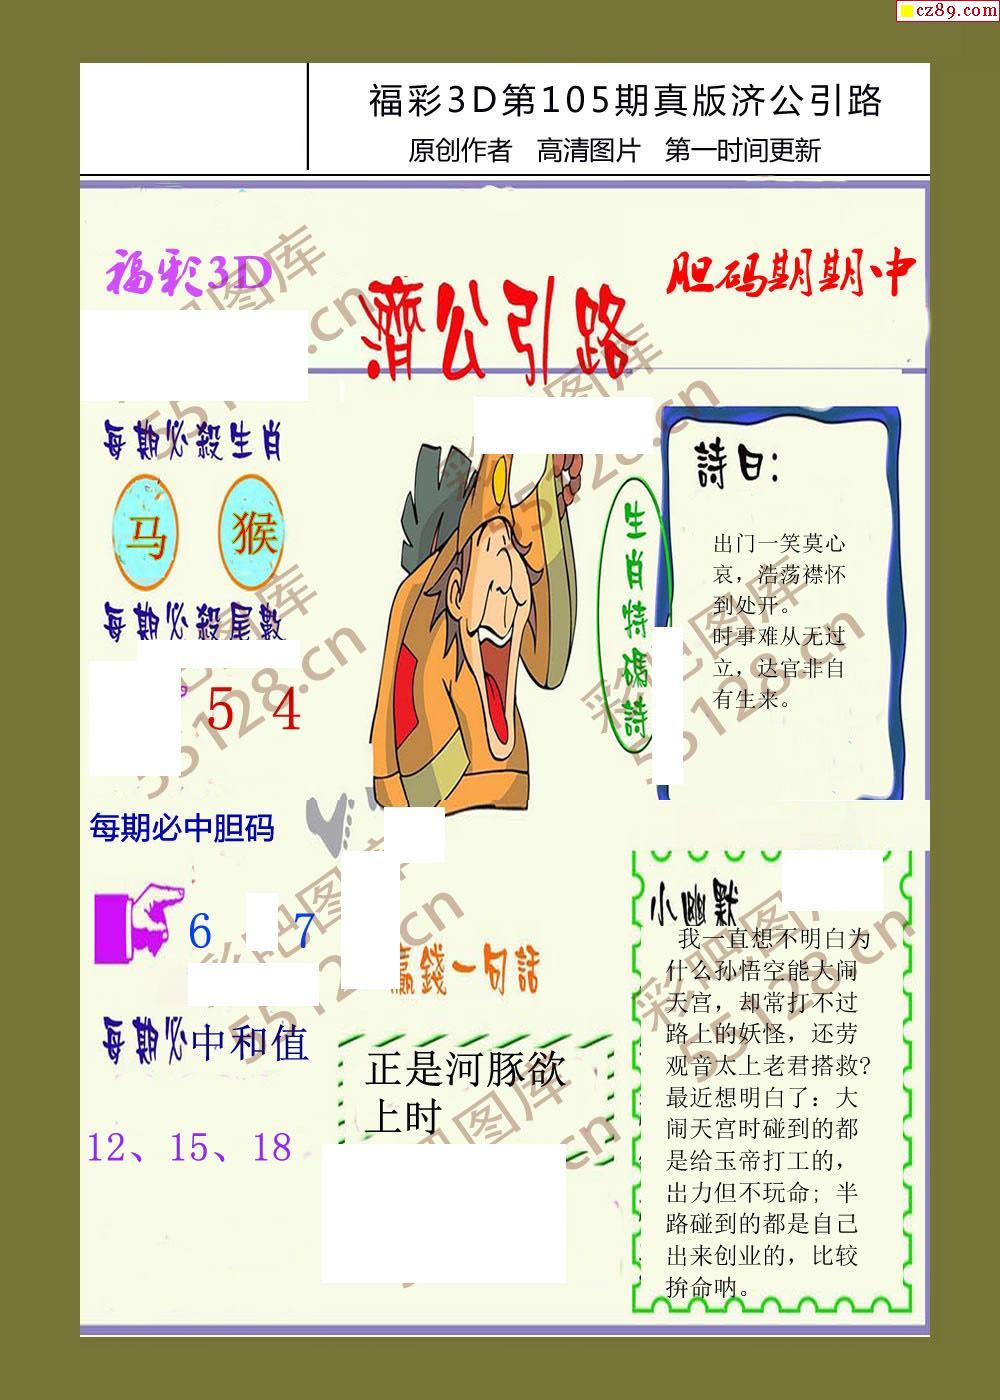 cz89.com
福彩3D第105期真版济公引路
原创作者 高清图片 第一时间更新
福彩3D
胆码期期中
濟公引路
每期必殺生肖
马 猴
每期必殺尾數
5 4
每期必中胆码
6 7
每期必中和值
12、15、18
生肖特碼詩
詩曰：
出门一笑莫心
哀，浩荡襟怀
到处开。
时事难从无过
立，达官非自
有生来。
贏錢一句話
正是河豚欲
上时
小幽默
我一直想不明白为
什么孙悟空能大闹
天宫，却常打不过
路上的妖怪，还劳
观音太上老君搭救?
最近想明白了：大
闹天宫时碰到的都
是给玉帝打工的，
出力但不玩命；半
路碰到的都是自己
出来创业的，比较
拚命呐。
彩吧图库
55128.cn
彩吧图库
55128.cn
彩吧图库
55128.cn
彩吧图库
55128.cn